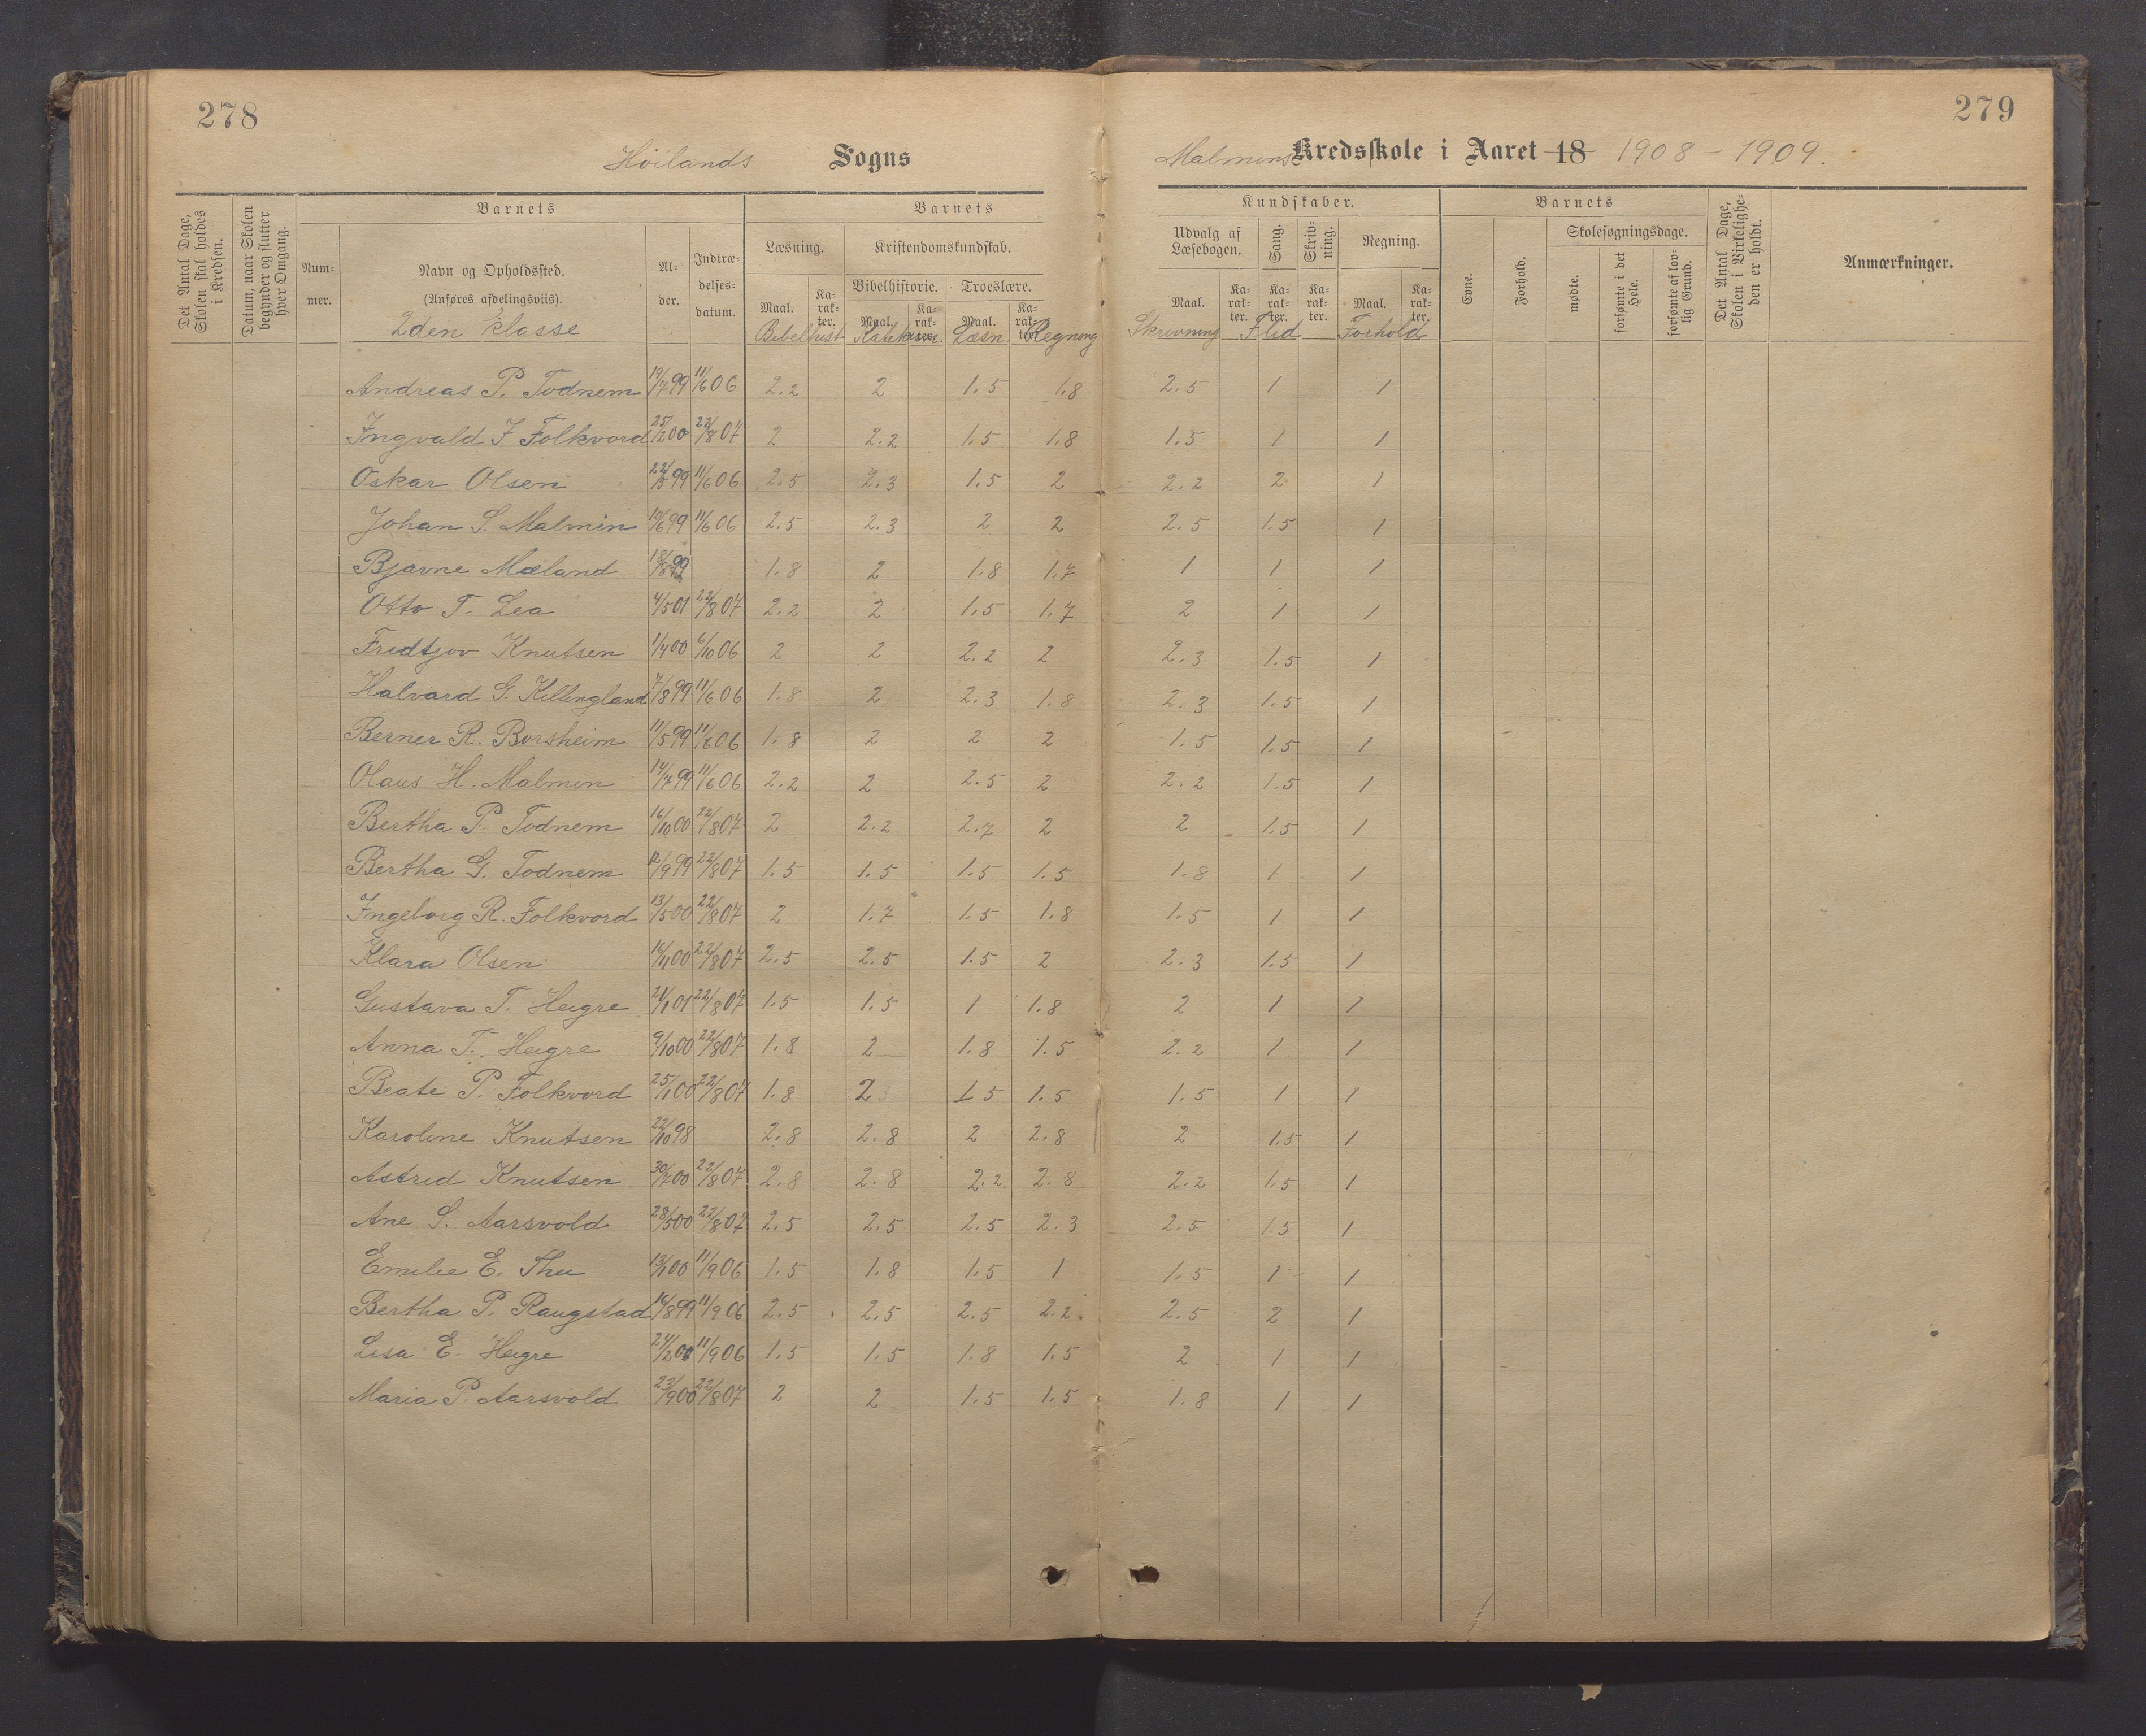 278
279
Höilands Sogns
Malmins Kredsskole i Aaret 18 1908 - 1909.
Det Antal Dage, Skolen skal holdes i Kredsen.
Datum, naar Skolen begynder og slutter hver Omgang.
Barnets
Nummer.
Navn og Opholdssted.
(Anføres afdelingsviis).
2den klasse
Alder.
Indtrædelsesdatum.
Barnets
Læsning.
Kristendomskundskab.
Bibelhistorie.
Troeslære.
Maal. Karakter. Maal. Karakter. Maal. Karakter.
Bibelhist Katekism. Læsn Regning
Kundskaber.
Udvalg af Læsebogen.
Sang.
Skrivning.
Regning.
Maal. Karakter. Karakter. Karakter. Maal. Karakter.
Skrivning Flid Forhold
Barnets
Evne.
Forhold.
Skolesøgningsdage.
mødte.
forsømte i det Hele.
forsømte af lovlig Grund.
Det Antal Dage, Skolen i Virkeligheden er holdt.
Anmærkninger.
Andreas P. Todnem 19/7 99 11/6 06 2.2 2 1.5 1.8 2.5 1 1
Ingvald J Folkvord 25/12 00 22/8 07 2 2.2 1.5 1.8 1.5 1 1
Oskar Olsen 22/5 99 11/6 06 2.5 2.3 1.5 2 2.2 2 1
Johan S. Malmin 10/6 99 11/6 06 2.5 2.3 2 2 2.5 1.5 1
Bjarne Mæland 18/8 99 1.8 2 1.8 1.7 1 1 1
Otto T. Lea 4/5 01 22/8 07 2.2 2 1.5 1.7 2 1 1
Fridtjov Knutsen 1/4 00 6/10 06 2 2 2.2 2 2.3 1.5 1
Halvard G. Kellingland 7/8 99 11/6 06 1.8 2 2.3 1.8 2.3 1.5 1
Berner R. Borsheim 11/5 99 11/6 06 1.8 2 2 2 1.5 1.5 1
Olaus H. Malmin 14/7 99 11/6 06 2.2 2 2.5 2 2.2 1.5 1
Bertha P. Todnem 16/10 00 22/8 07 2 2.2 2.7 2 2 1.5 1
Bertha G. Todnem 12/9 99 22/8 07 1.5 1.5 1.5 1.5 1.8 1 1
Ingeborg R. Folkvord 13/5 00 22/8 07 2 1.7 1.5 1.8 1.5 1 1
Klara Olsen 16/11 00 22/8 07 2.5 2.5 1.5 2 2.3 1.5 1
Gustava T. Heigre 21/1 01 22/8 07 1.5 1.5 1 1.8 2 1 1
Anna T. Heigre 9/10 00 22/8 07 1.8 2 1.8 1.5 2.2 1 1
Beate P. Folkvord 25/1 00 22/8 07 1.8 2 1.5 1.5 1.5 1 1
Karoline Knutsen 22/10 98 2.8 2.8 2 2.8 2 1.5 1
Astrid Knutsen 30/7 00 22/8 07 2.8 2.8 2.2 2.8 2.2 1.5 1
Ane S. Aarsvold 28/5 00 22/8 07 2.5 2.5 2.5 2.3 2.5 1.5 1
Emilie E. Thu 13/1 00 11/9 06 1.5 1.8 1.5 1 1.5 1 1
Bertha P. Raugstad 16/8 99 11/9 06 2.5 2.5 2.5 2.2 2.5 2 1
Lisa E. Heigre 24/2 00 11/9 06 1.5 1.5 1.8 1.5 2 1 1
Maria P. Aarsvold 23/9 00 22/8 07 2 2 1.5 1.5 1.8 1 1